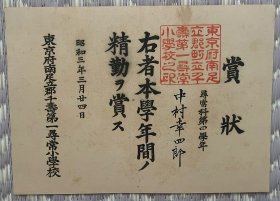 賞狀
尋常科第四學年
中村幸四郎
右者本學年間ノ
精勤ヲ賞ス
昭和三年三月廿四日
東京府南足立郡千壽第一尋常小學校
東京府南足
立郡町立千
壽第一尋常
小學校之印